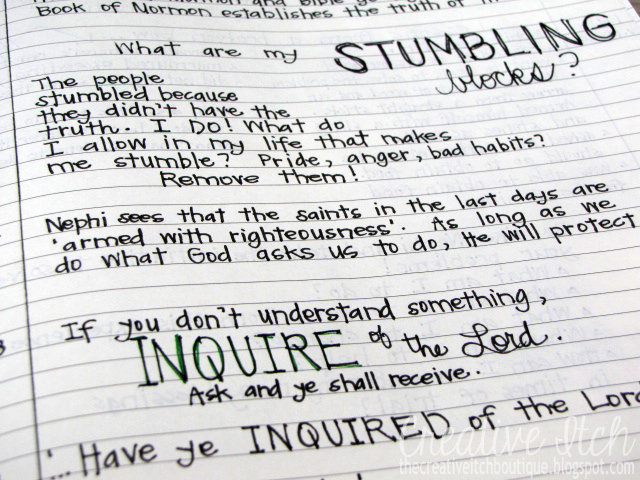 and Bible
Book of Mormon establishes the truth of
What are my STUMBLING
blocks?
The people
stumbled because
they didn't have the
truth. I DO! What do
I allow in my life that makes
me stumble? Pride, anger, bad habits?
Remove them!
Nephi sees that the saints in the last days are
'armed with righteousness'. As long as we
do what God asks us to do, He will protect
If you don't understand something,
INQUIRE of the Lord.
Ask and ye shall receive.
'...Have ye INQUIRED of the Lord
Creative Itch
thecreativeitchboutique.blogspot.com